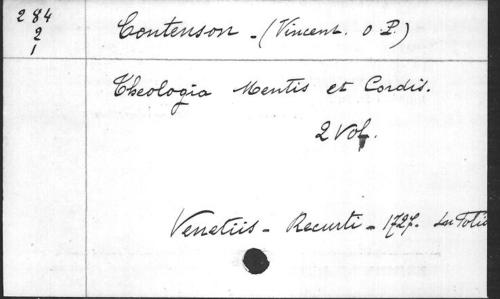 284
2
1
Contenson - (Vincent. O P.)
Theologia Mentis et Cordis.
2 Vol.
Venetiis - Recurti - 1727. In Folio